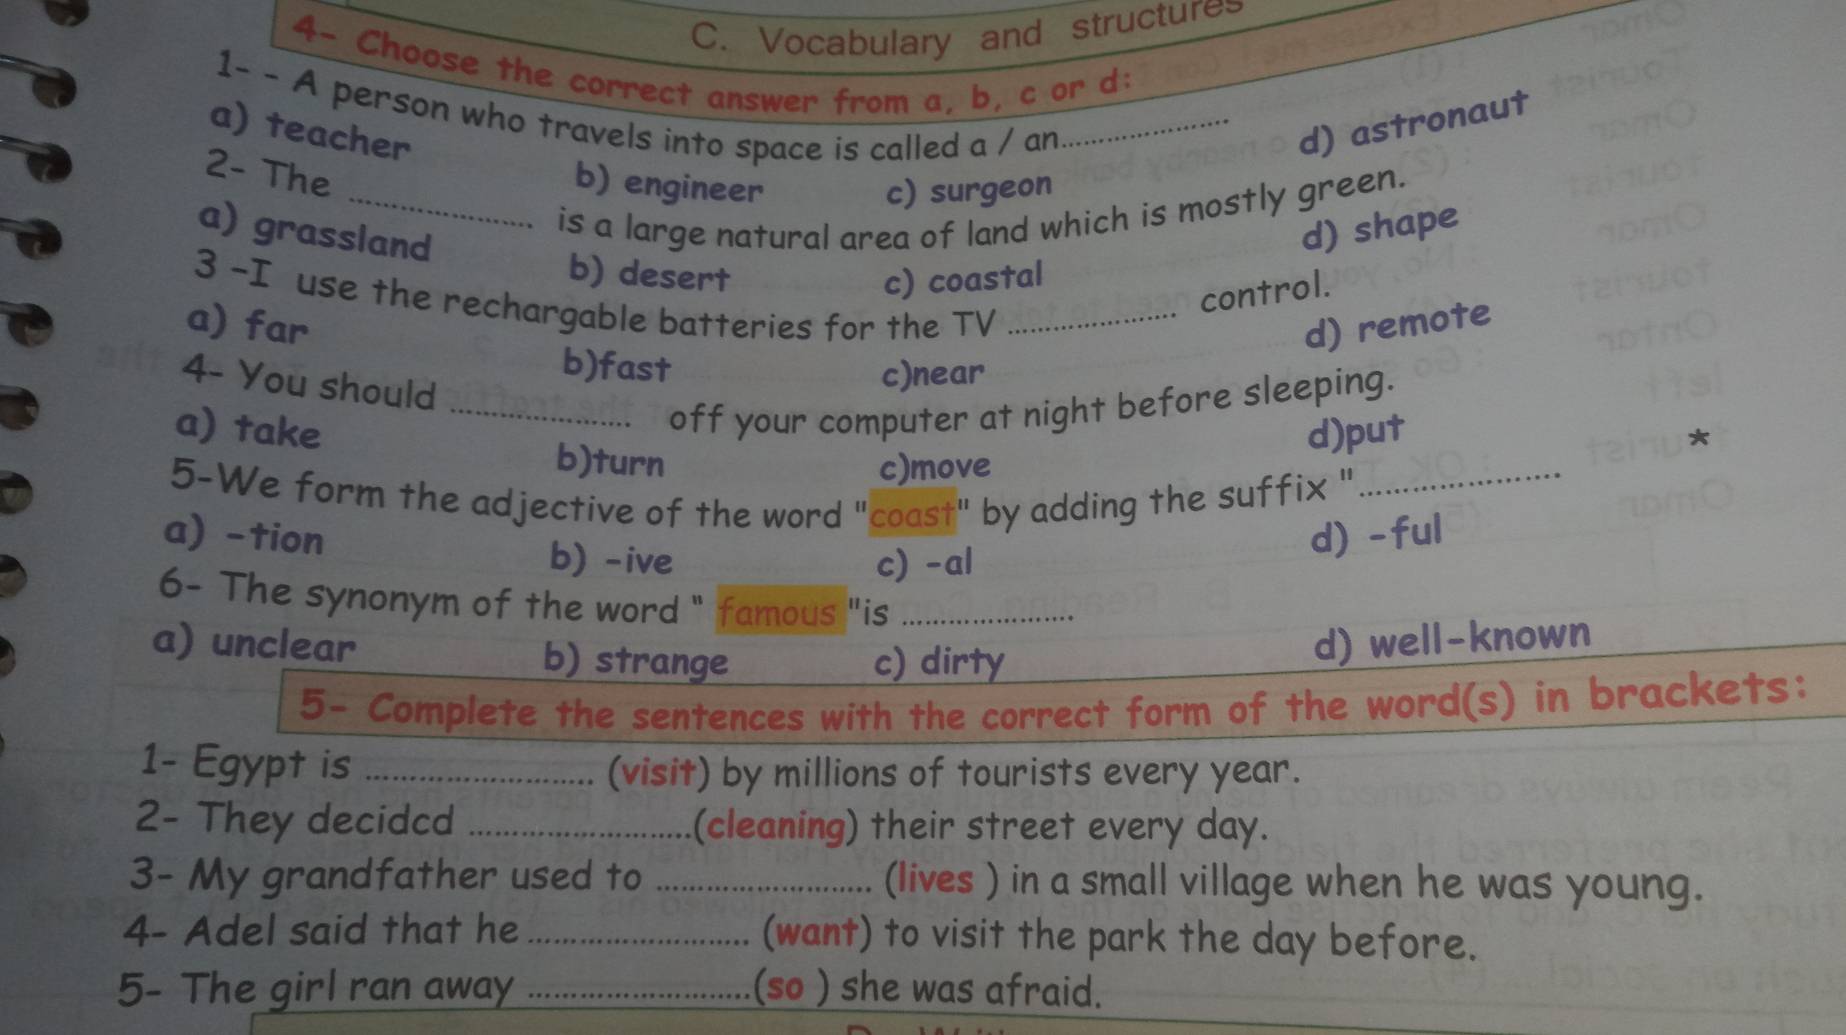 C. Vocabulary and structures
4- Choose the correct answer from a, b, c or d:
1- - A person who travels into space is called a / an....................
a) teacher b) engineer c) surgeon d) astronaut
2- The .................... is a large natural area of land which is mostly green.
a) grassland b) desert c) coastal d) shape
3 -I use the rechargable batteries for the TV .................... control.
a) far b)fast c)near d) remote
4- You should .................... off your computer at night before sleeping.
a) take b)turn c)move d)put
5-We form the adjective of the word "coast" by adding the suffix ".................... *
a) -tion b) -ive c) -al d) -ful
6- The synonym of the word " famous "is ....................
a) unclear b) strange c) dirty d) well-known
5- Complete the sentences with the correct form of the word(s) in brackets:
1- Egypt is ........................ (visit) by millions of tourists every year.
2- They decidcd ........................(cleaning) their street every day.
3- My grandfather used to ........................ (lives ) in a small village when he was young.
4- Adel said that he ........................ (want) to visit the park the day before.
5- The girl ran away ........................(so ) she was afraid.